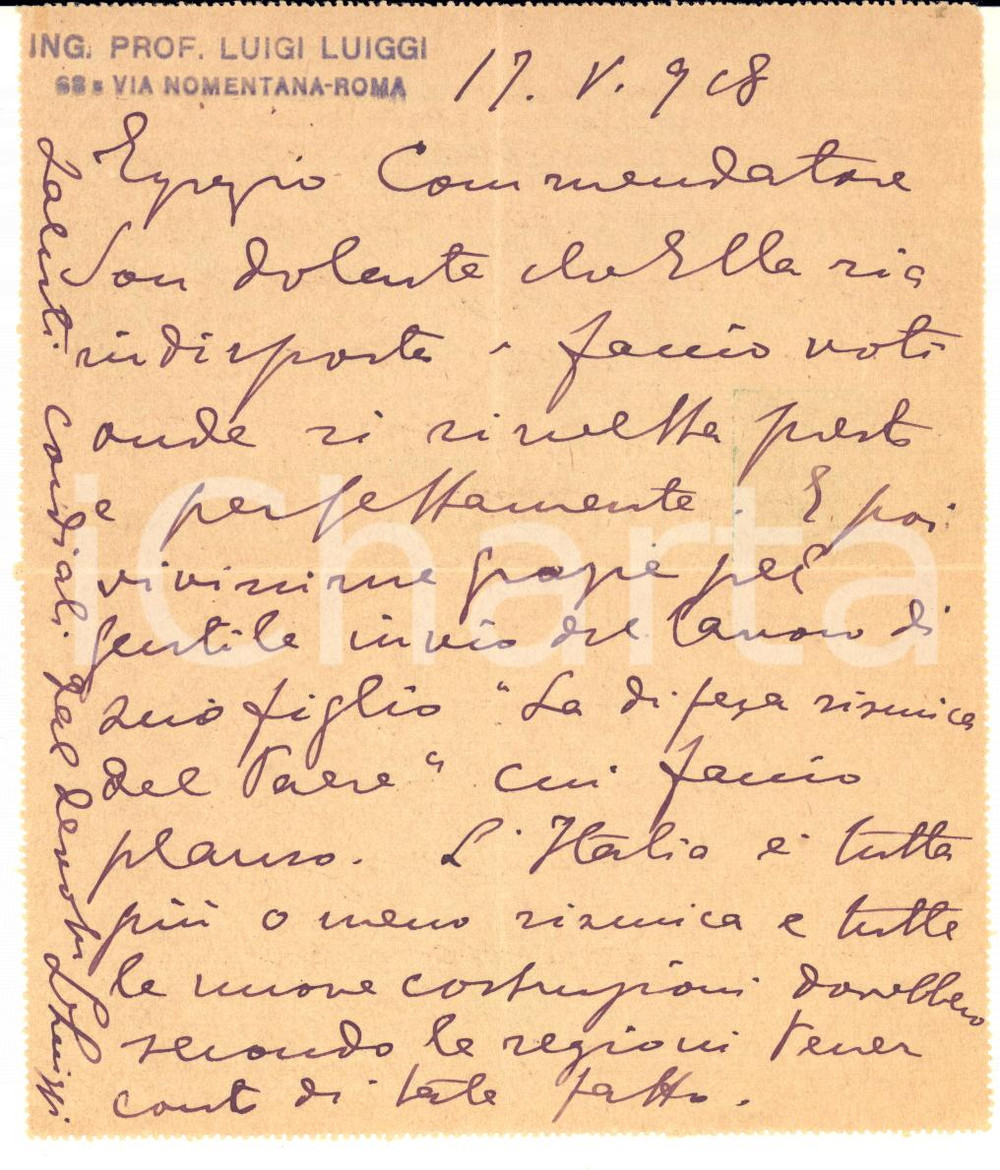 ING. PROF. LUIGI LUIGGI
68 VIA NOMENTANA-ROMA
17. V. 928
Egregio Commendatore
Son dolente che Ella sia
indisposto e faccio voti
onde si rimetta presto
e perfettamente. E poi
vivissime grazie pel
gentile invio del lavoro di
suo figlio "La difesa sismica
del Paese" cui faccio
plauso. L'Italia è tutta
più o meno sismica e tutte
le nuove costruzioni dovrebbero
secondo le regioni tener
conto di tale fatto.
Saluti cordiali dal devoto LLuiggi.
iCharta